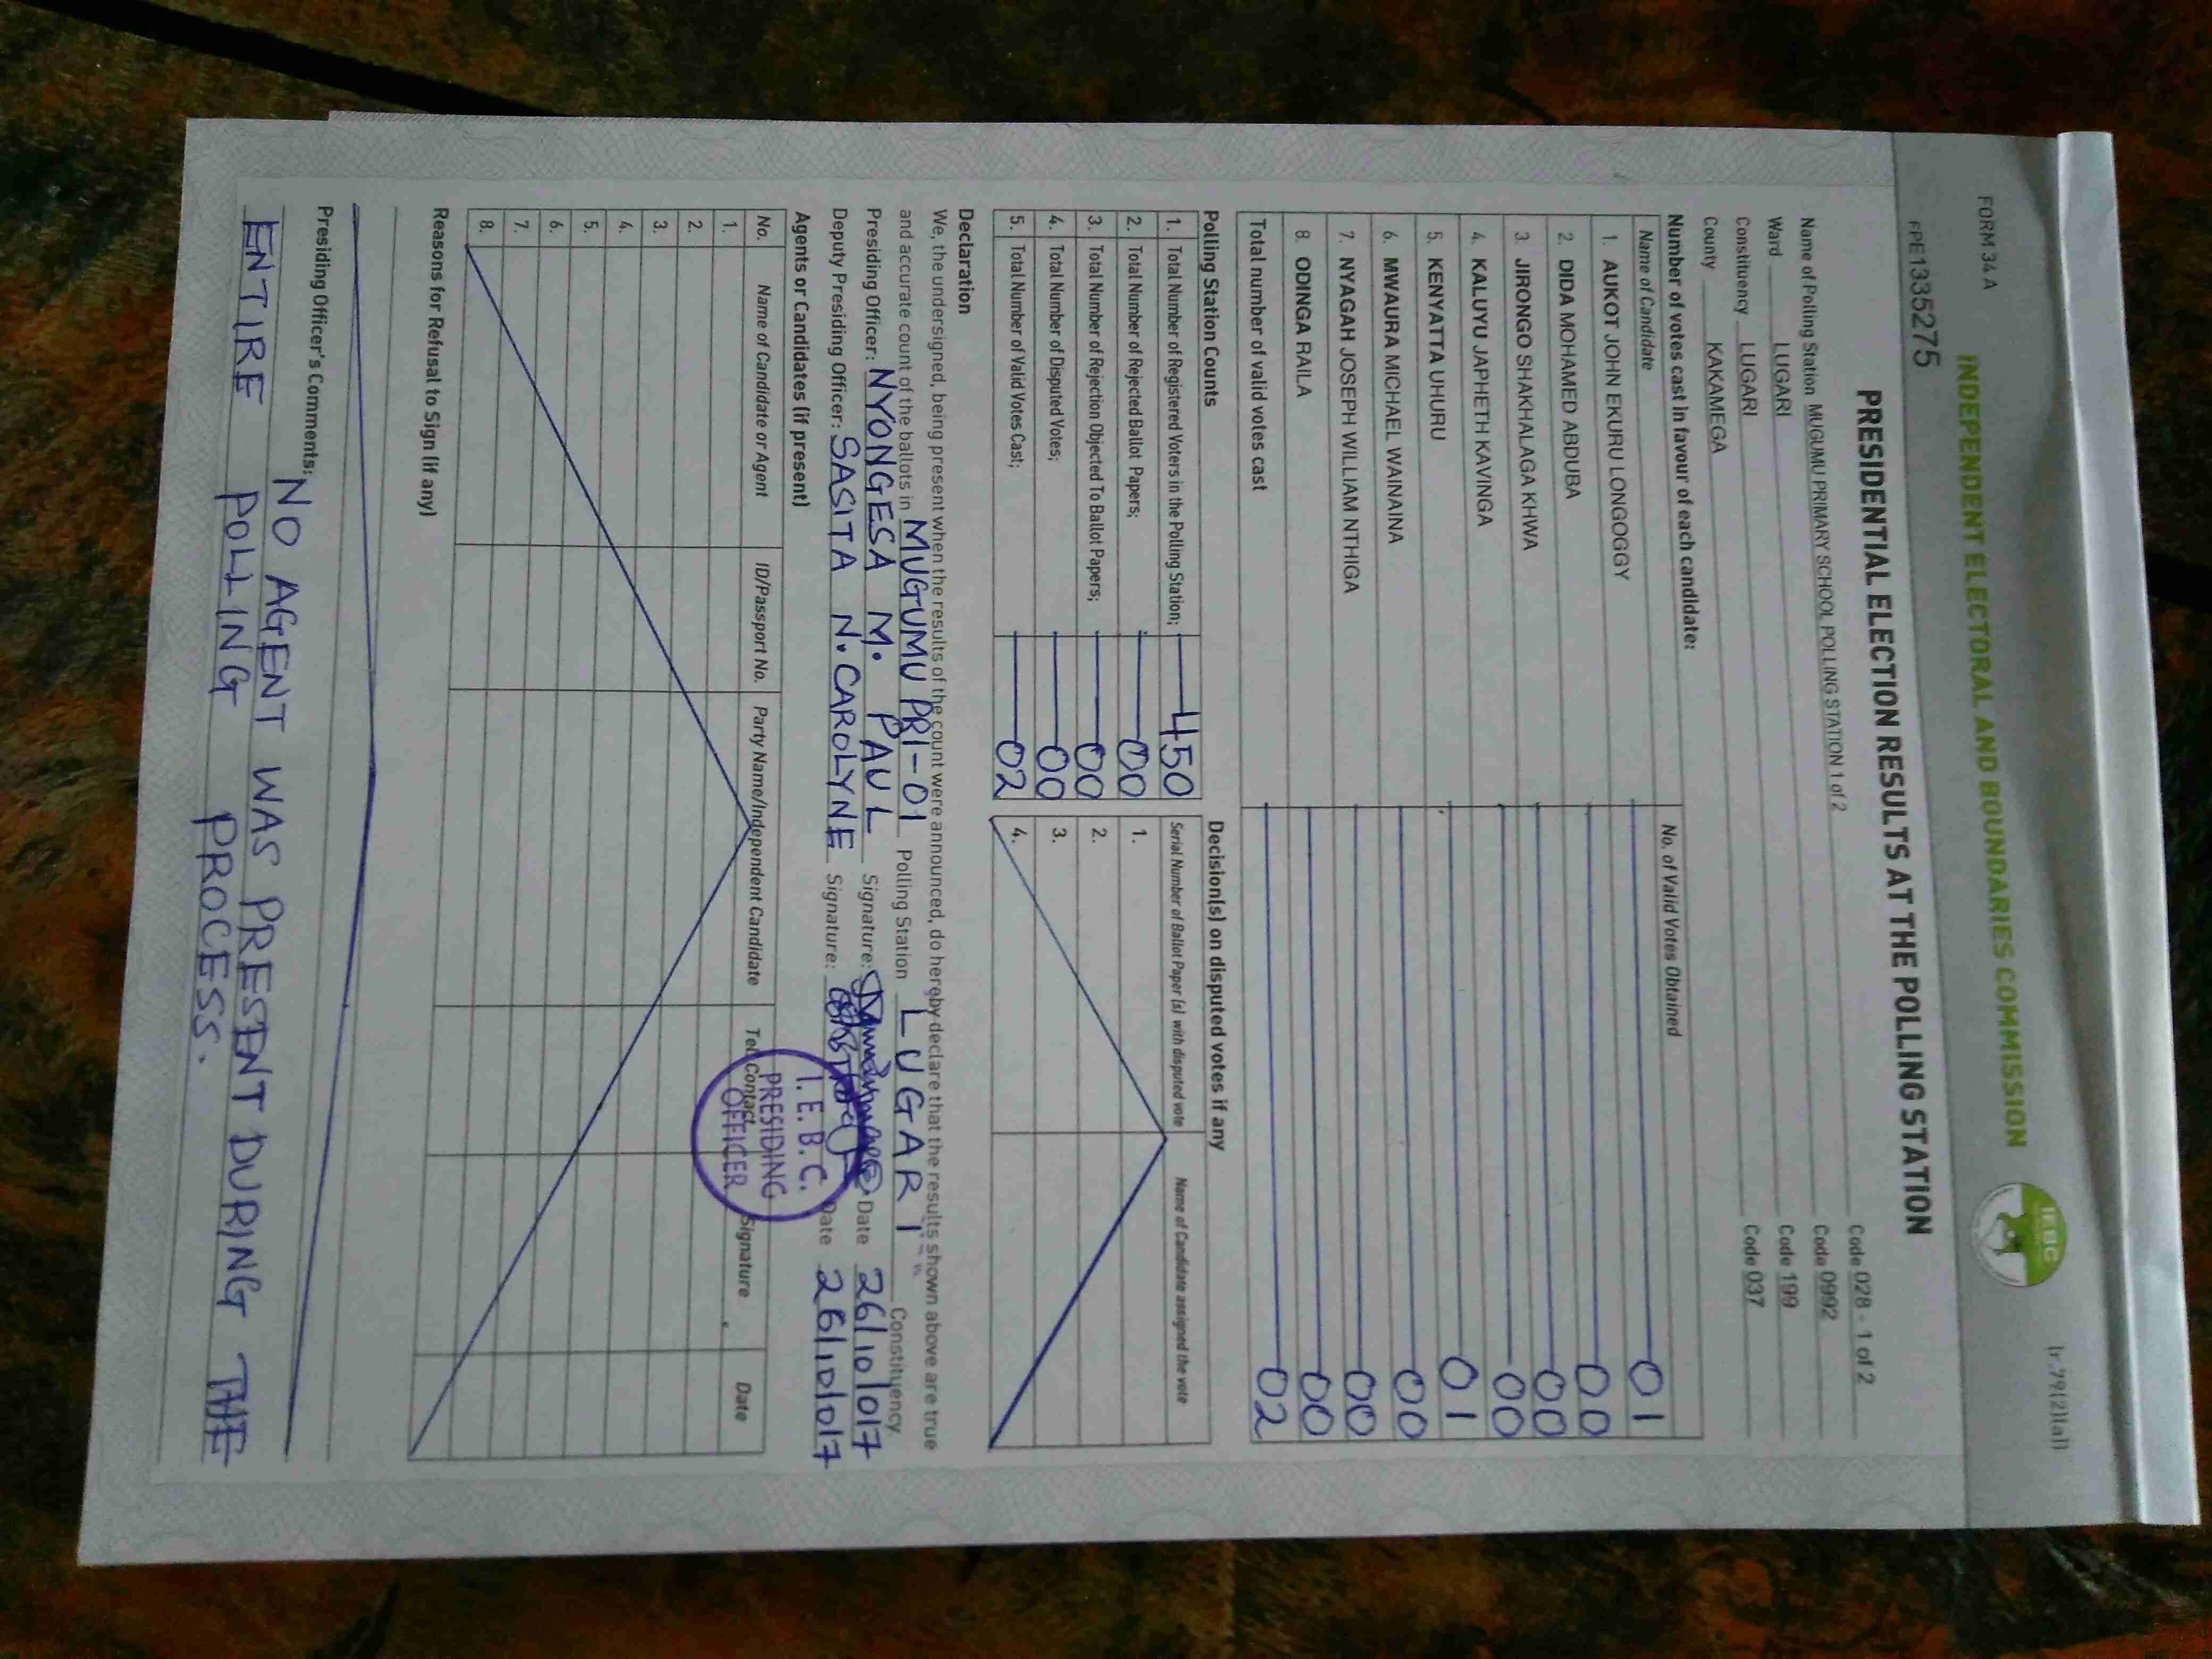 FORM 34A
(r.79(2)(a))
INDEPENDENT ELECTORAL AND BOUNDARIES COMMISSION
IEBC
FPE1335275
PRESIDENTIAL ELECTION RESULTS AT THE POLLING STATION
Name of Polling Station MUGUMU PRIMARY SCHOOL POLLING STATION 1 of 2 Code 028 - 1 of 2
Ward LUGARI Code 0992
Constituency LUGARI Code 199
County KAKAMEGA Code 037
Number of votes cast in favour of each candidate:
Name of Candidate No. of Valid Votes Obtained
1. AUKOT JOHN EKURU LONGOGGY 01
2. DIDA MOHAMED ABDUBA 00
3. JIRONGO SHAKHALAGA KHWA 00
4. KALUYU JAPHETH KAVINGA 00
5. KENYATTA UHURU 01
6. MWAURA MICHAEL WAINAINA 00
7. NYAGAH JOSEPH WILLIAM NTHIGA 00
8. ODINGA RAILA 00
Total number of valid votes cast 02
Polling Station Counts
1. Total Number of Registered Voters in the Polling Station; 450
2. Total Number of Rejected Ballot Papers; 00
3. Total Number of Rejection Objected To Ballot Papers; 00
4. Total Number of Disputed Votes; 00
5. Total Number of Valid Votes Cast; 02
Decision(s) on disputed votes if any
Serial Number of Ballot Paper (s) with disputed vote Name of Candidate assigned the vote
1.
2.
3.
4.
Declaration
We, the undersigned, being present when the results of the count were announced, do hereby declare that the results shown above are true
and accurate count of the ballots in MUGUMU PRI-01 Polling Station LUGARI Constituency
Presiding Officer: NYONGESA M. PAUL Signature: Date 26/10/017
Deputy Presiding Officer: SASITA N. CAROLYNE Signature: Date 26/10/017
I.E.B.C.
PRESIDING
OFFICER
Agents or Candidates (if present)
No. Name of Candidate or Agent ID/Passport No. Party Name/Independent Candidate Tel Contact Signature Date
1.
2.
3.
4.
5.
6.
7.
8.
Reasons for Refusal to Sign (if any)
Presiding Officer's Comments:
NO AGENT WAS PRESENT DURING THE
ENTIRE POLLING PROCESS.